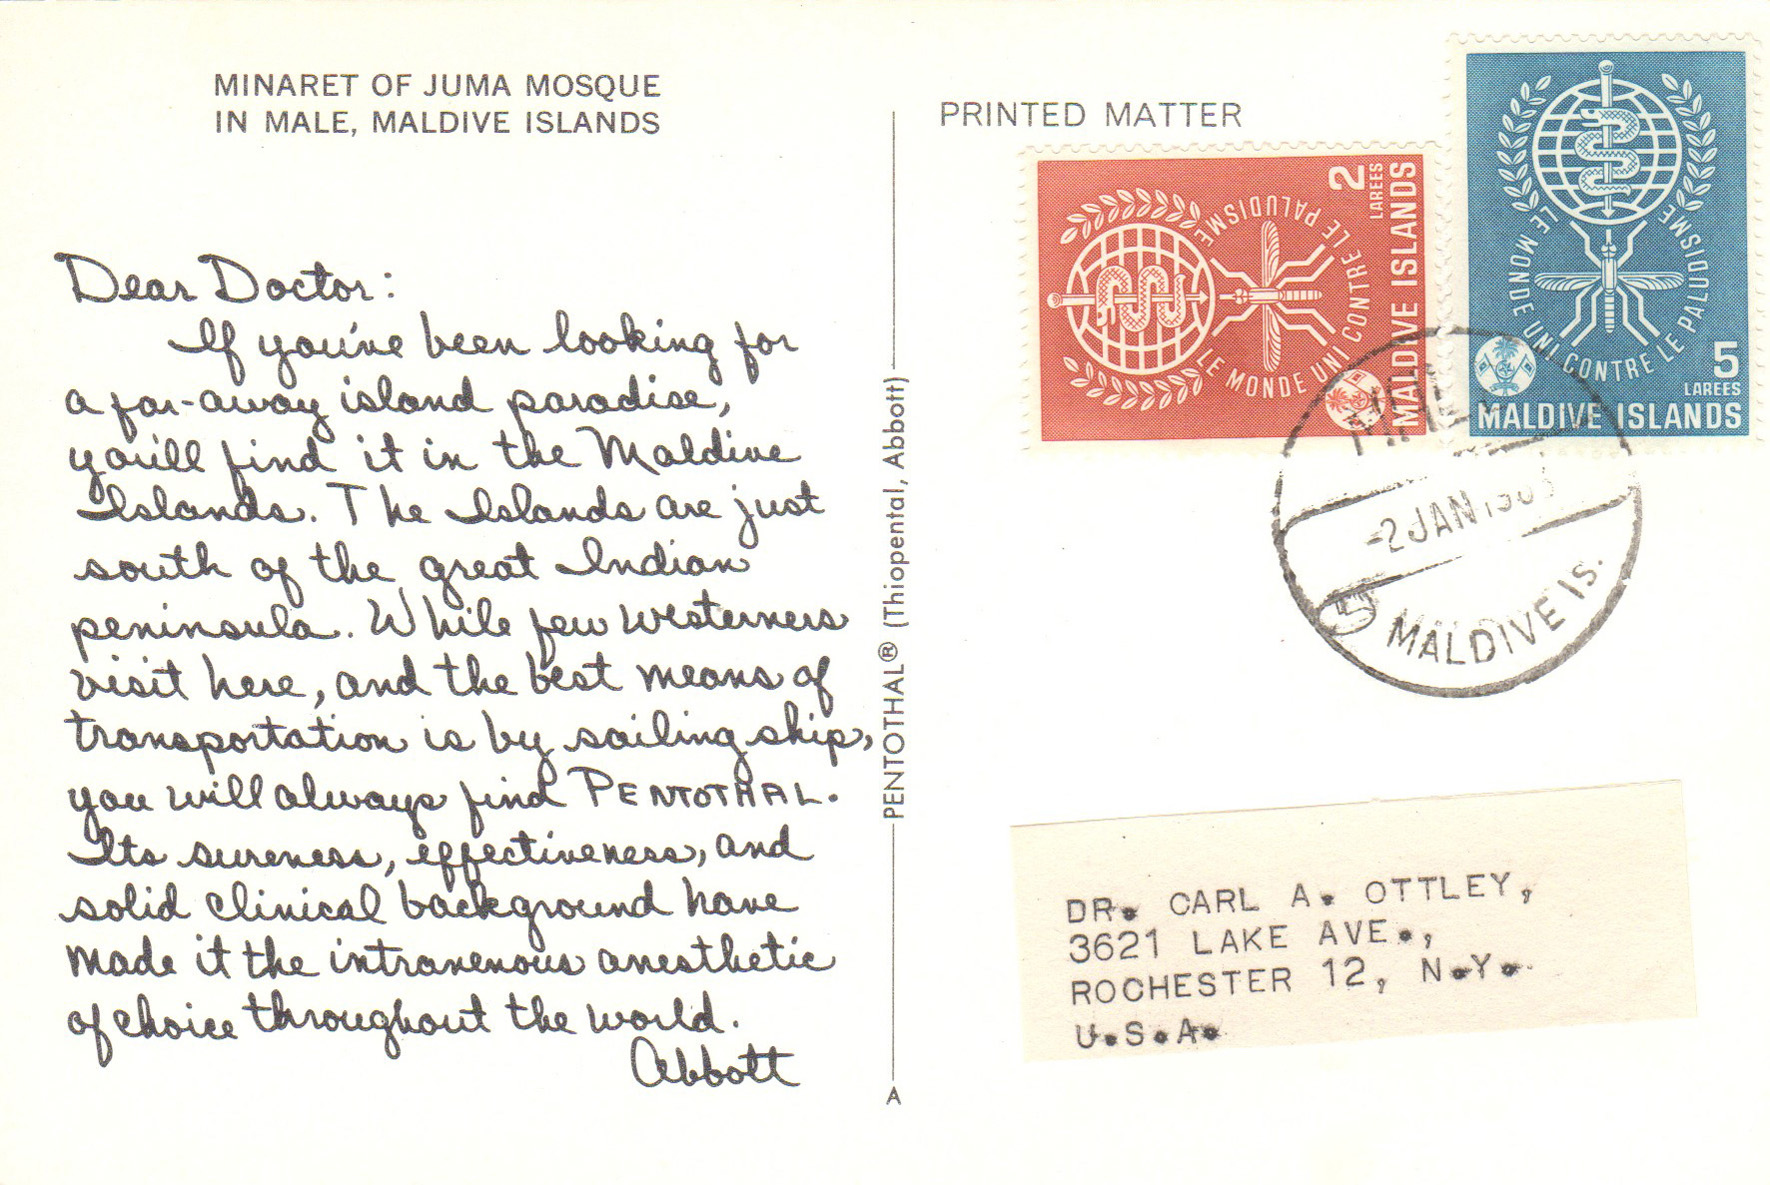 MINARET OF JUMA MOSQUE
IN MALE, MALDIVE ISLANDS
Dear Doctor:
If you've been looking for
a far-away island paradise,
you'll find it in the Maldive
Islands. The Islands are just
south of the great Indian
peninsula. While few westerners
visit here, and the best means of
transportation is by sailing ship,
you will always find PENTOTHAL.
Its sureness, effectiveness, and
solid clinical background have
made it the intravenous anesthetic
of choice throughout the world.
Abbott
PENTOTHAL® (Thiopental, Abbott)
A
PRINTED MATTER
2
LAREES
MALDIVE ISLANDS
LE MONDE UNI CONTRE LE PALUDISME
LE MONDE UNI CONTRE LE PALUDISME
5
LAREES
MALDIVE ISLANDS
-2 JAN 1963
MALDIVE Is.
DR. CARL A. OTTLEY,
3621 LAKE AVE.,
ROCHESTER 12, N.Y.
U.S.A.